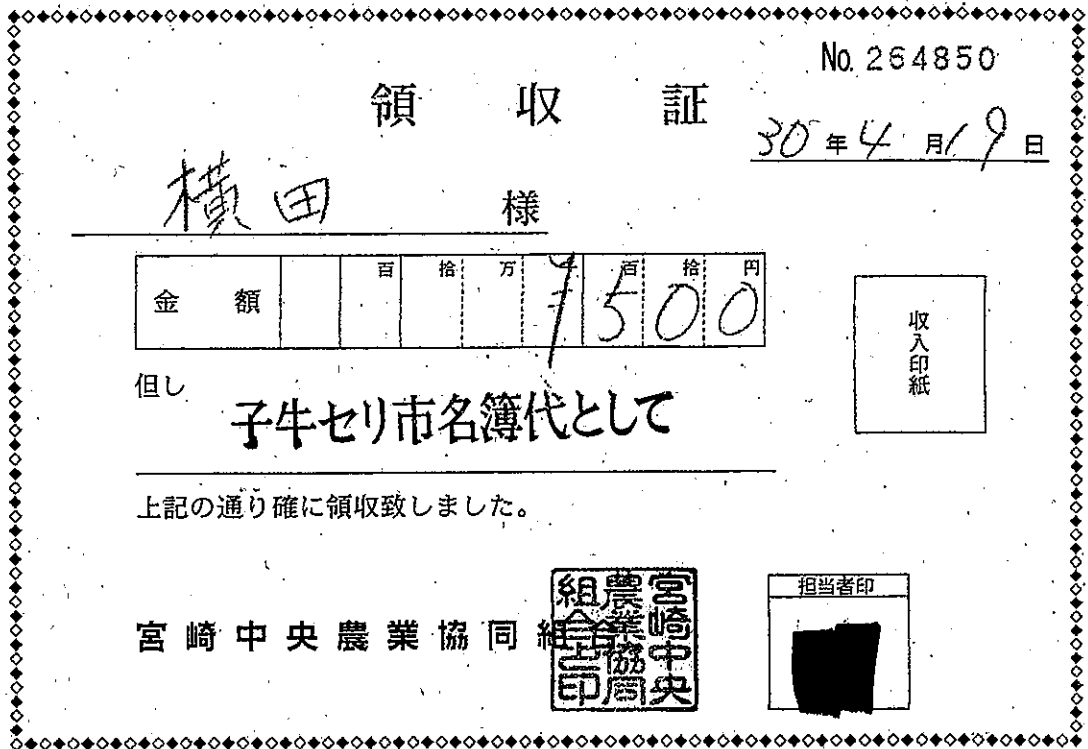 No. 264850
領収証
30年4月19日
横田 様
金額 百 拾 万 千 百 拾 円
¥500
収入印紙
但し
子牛セリ市名簿代として
上記の通り確に領収致しました。
宮崎中央農業協同組合
宮崎中央農業協同組合之印
担当者印